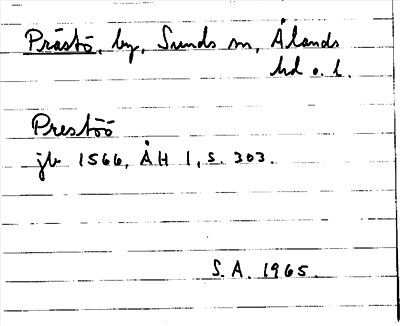 Prästö, by, Sunds sn, Ålands
hd o. l.
Prestöö
jb 1566, ÅH 1, s. 303.
S.A. 1965.